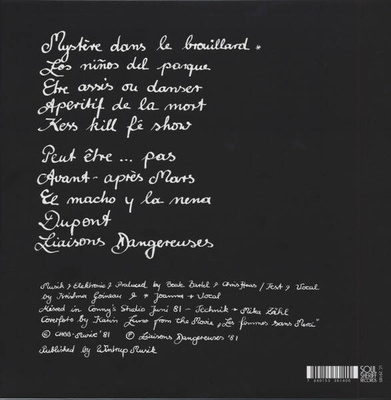 Mystère dans le brouillard *
Los niños del parque
Etre assis ou danser
Aperitif de la mort
Kess kill fê show
Peut être ... pas
Avant-après Mars
El macho y la nena
Dupont
Liaisons Dangereuses
Musik, Elektronic, Produced by Beate Bartel, Chris Haas / Text, Vocal
by Krishna Goineau * Joanna + Vocal
Mixed in Conny's Studio Juni 81 - Technik + Mika
from the Movie, "Les femmes sans Merci"
Music '81 © Liaisons Dangereuses '81
Published by Wintrup Musik
SOUL
SHERIFF
RECORDS